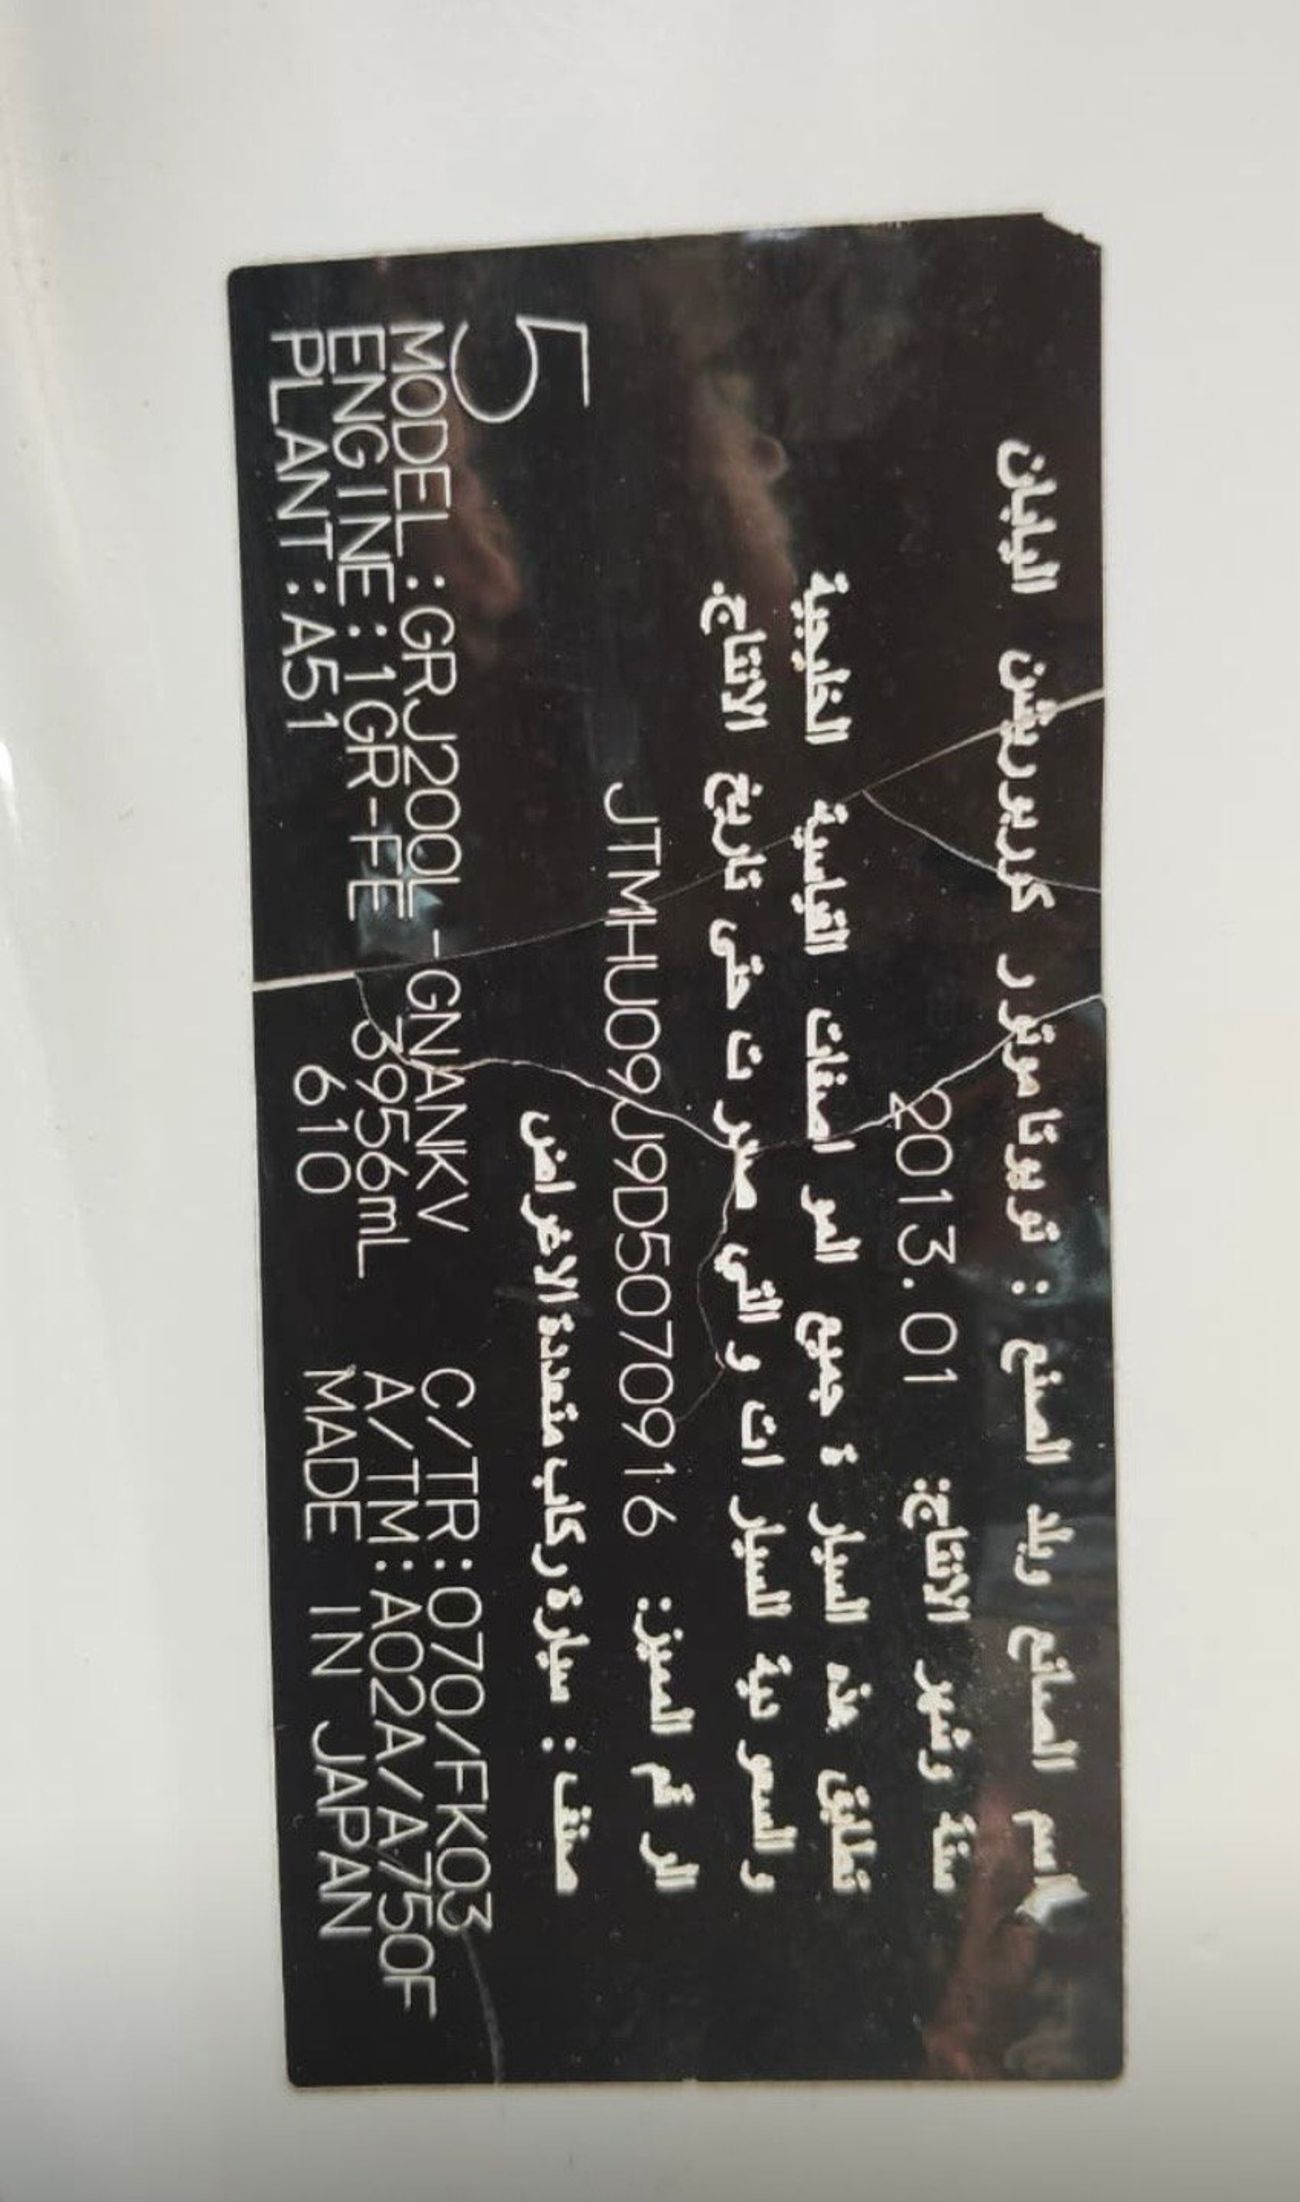 اسم الصانع وبلد الصنع : تويوتا موتور كوربوريشن اليابان
سنة وشهر الانتاج: 2013.01
تطابق هذه السيارة جميع المواصفات القياسية الخليجية
والسعودية للسيارات والتي صدرت حتى تاريخ الانتاج.
الرقم المميز: JTMHU09J9D5070916
صنف : سيارة ركاب متعددة الاغراض
5
MODEL:GRJ200L-GNANKV C/TR:070/FK03
ENGINE:1GR-FE 3956mL A/TM:A02A/A750F
PLANT:A51 610 MADE IN JAPAN